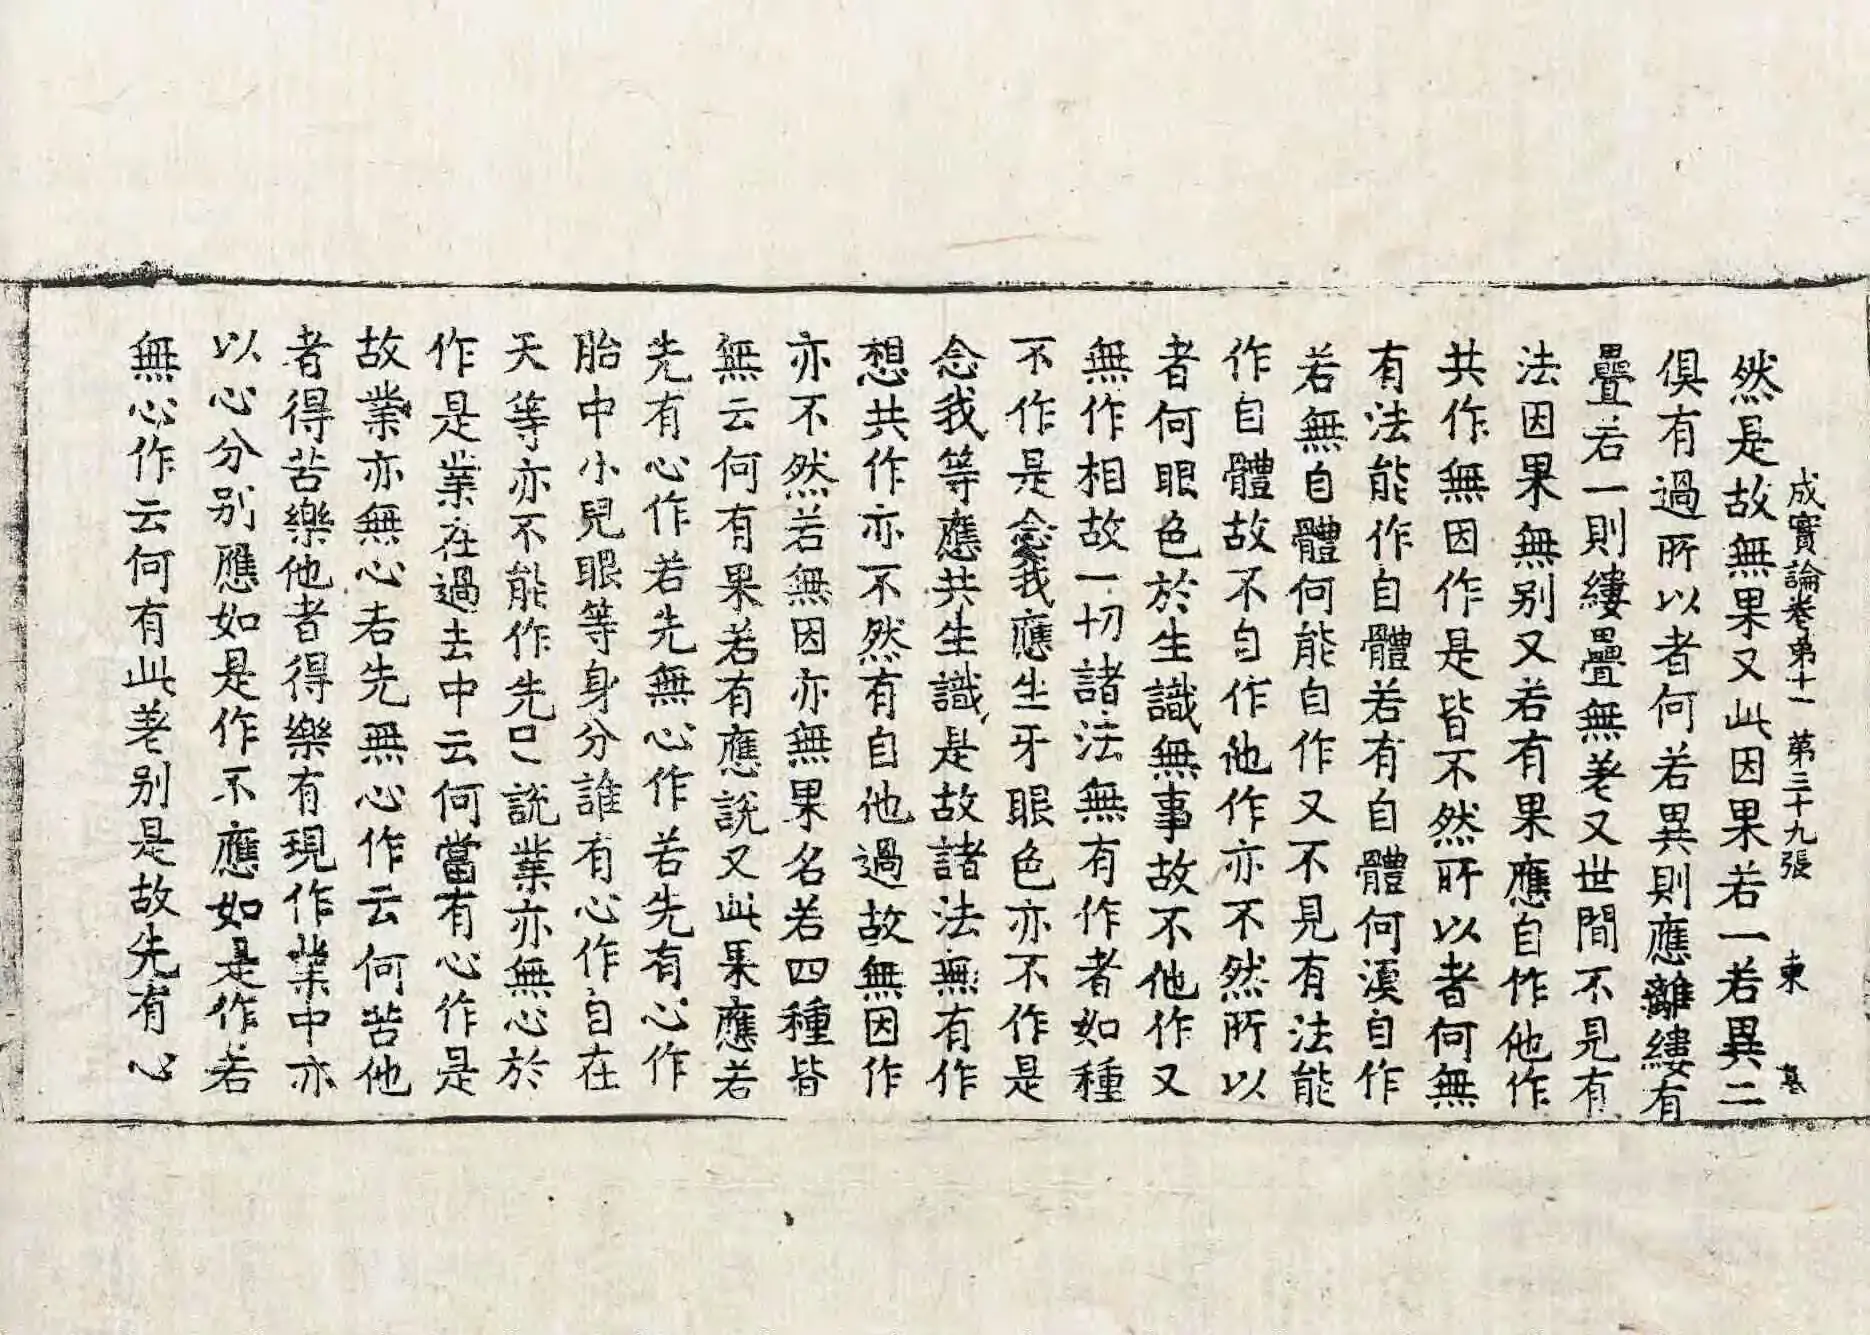 成實論卷第十一 第三十九張 東 基
然是故無果又此因果若一若異二
俱有過所以者何若異則應離縷有
疊若一則縷疊無差又世間不見有
法因果無别又若有果應自作他作
共作無因作是皆不然所以者何無
有法能作自體若有自體何湏自作
若無自體何能自作又不見有法能
作自體故不自作他作亦不然所以
者何眼色於生識無事故不他作又
無作相故一切諸法無有作者如種
不作是念我應生牙眼色亦不作是
念我等應共生識是故諸法無有作
想共作亦不然有自他過故無因作
亦不然若無因亦無果名若四種皆
無云何有果若有應說又此果應若
先有心作若先無心作若先有心作
胎中小兒眼等身分誰有心作自在
天等亦不能作先已說業亦無心於
作是業在過去中云何當有心作是
故業亦無心若先無心作云何苦他
者得苦樂他者得樂有現作業中亦
以心分别應如是作不應如是作若
無心作云何有此差别是故先有心